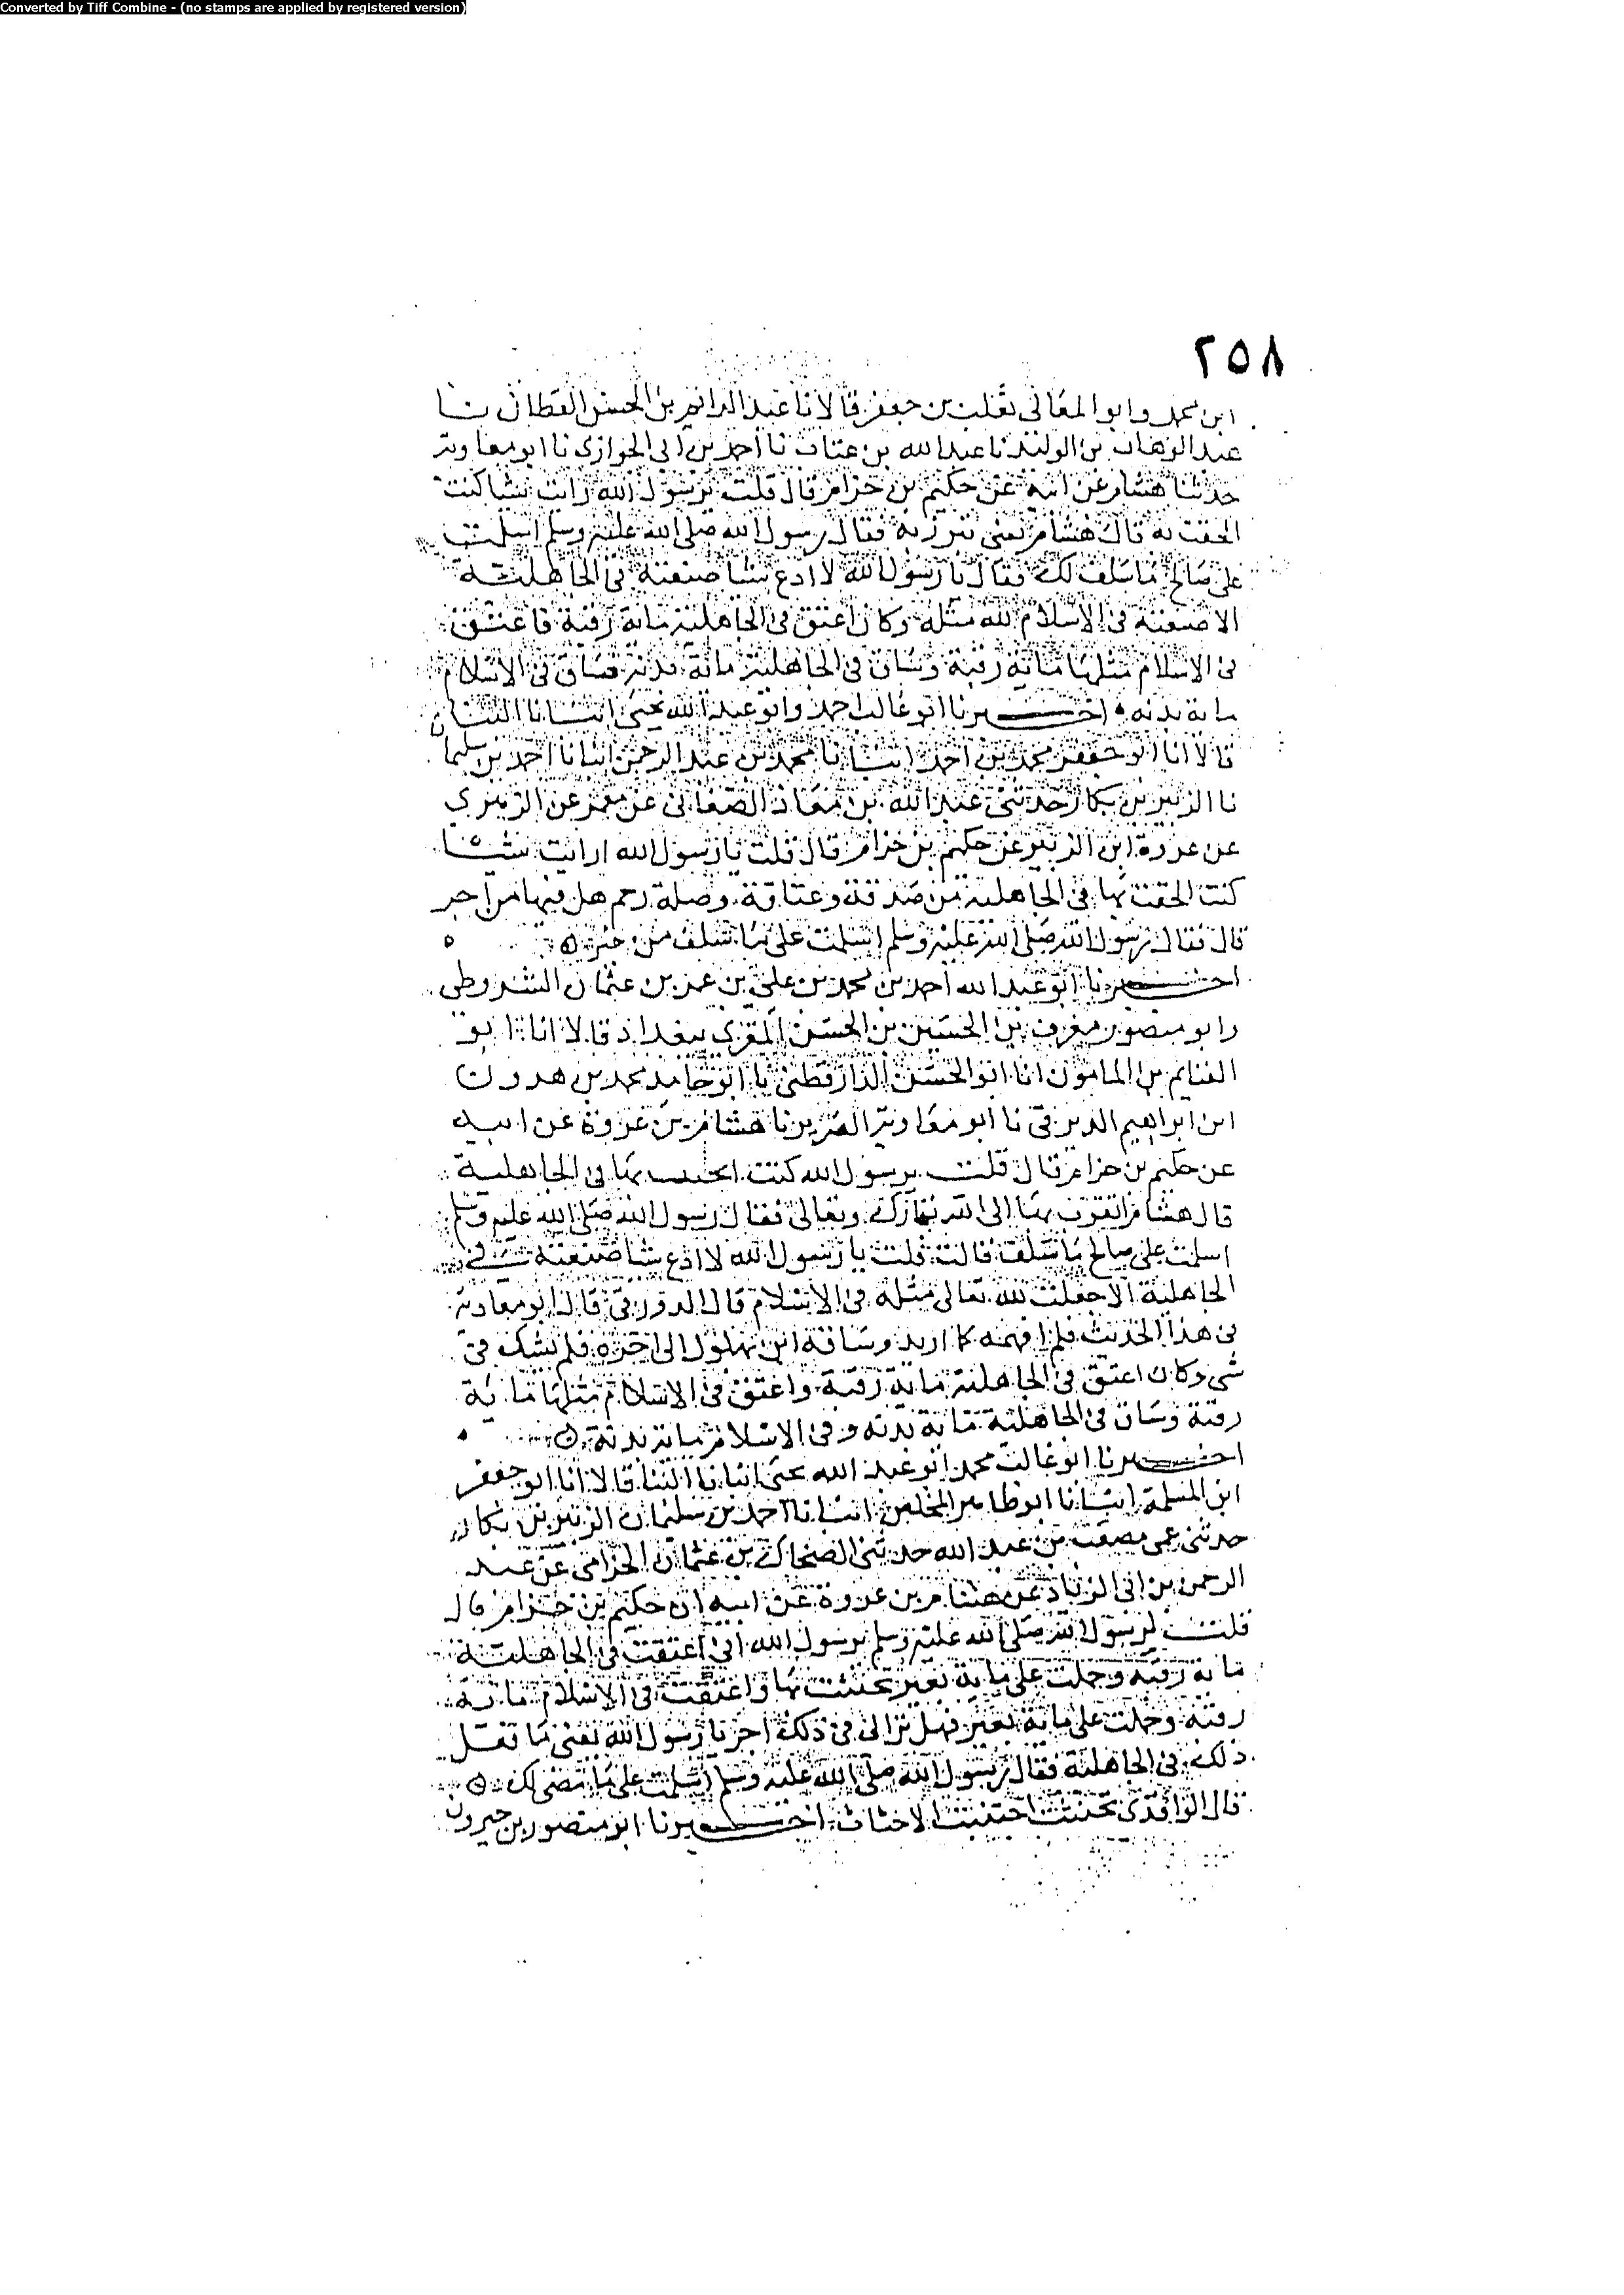 Converted by Tiff Combine - (no stamps are applied by registered version)
٢٥٨
ابن محمد وابو المعالي تغلب بن جعفر قالا نا عبد الدائم بن الحسن القطان نا
عبد الوهاب بن الوليد نا عبد الله بن عتاب نا احمد بن ابى الحوارى نا ابو معاوية
حدثنا هشام عن ابيه عن حكيم بن حزام قال قلت يرسول الله رايت شيا كنت
الحقت به قال هشام يعنى تبرر به فقال رسول الله صلى الله عليه وسلم اسلمت
على صالح ما سلف لك فقال يا رسول الله لا ادع شيا صنعته فى الجاهلية
الا صنعته فى الاسلام لله مثله وكان اعتق فى الجاهلية ماية رقبة فاعتق
فى الاسلام مثلها ماية رقبة وساق فى الجاهلية ماية بدنة فساق فى الاسلام
ماية بدنه اخبرنا ابو غالب احمد وابو عبد الله يحيى انبانا البنان
قالا انا ابو جعفر محمد بن احمد انبانا محمد بن عبد الرحمن انبانا احمد بن سليمان
نا الزبير بن بكار حدثنى عبد الله بن معاذ الصنعانى عن معمر عن الزهرى
عن عروة ابن الزبير عن حكيم بن حزام قال قلت يا رسول الله ارايت شيا
كنت الحقت بها فى الجاهلية من صدقة وعتاقة وصلة رحم هل فيها من اجر
قال فقال رسول الله صلى الله عليه وسلم اسلمت على ما سلف من خير
اخبرنا ابو عبد الله احمد بن محمد بن على بن عمر بن عثمان الشروطى
وابو منصور بن الحسين بن الحسن المقرى ببغداد قالا انا ابو
الغنايم بن المامون انا ابو الحسن الدارقطنى نا ابو حامد محمد بن هرون
ابن ابراهيم الدورقى نا ابو معاوية الضرير نا هشام بن عروة عن ابيه
عن حكيم بن حزام قال قلت يرسول الله كنت بها فى الجاهلية
قال هشام اتقرب بها الى الله تبارك وتعالى فقال رسول الله صلى الله عليه وسلم
اسلمت على صالح ما سلف قالت قلت يا رسول الله لا ادع شيا صنعته فى
الجاهلية الا جعلت لله تعالى مثله فى الاسلام قال الدورقى قال ابو معاوية
فى هذا الحديث فلم افهمه كما اريد وساقه ابن بهلول الى اخره فلم يشك فى
شى وكان اعتق فى الجاهلية ماية رقبة واعتق فى الاسلام مثلها ماية
رقبة وساق فى الجاهلية ماية بدنه وفى الاسلام ماية بدنة
اخبرنا ابو غالب محمد ابو عبد الله يحيى انبانا البنا قالا انا ابو جعفر
ابن المسلمة انبانا ابو طاهر المخلص انبانا احمد بن سليمان نا الزبير بن بكار
حدثنى عمى مصعب بن عبد الله حدثنى الضحاك بن عثمان الحزامى عن عبد
الرحمن بن ابى الزناد عن هشام بن عروة عن ابيه ان حكيم بن حزام قال
قلت لرسول الله صلى الله عليه وسلم يرسول الله انى اعتقت فى الجاهلية
ماية رقبة وحملت على ماية بعير تحنثت بها واعتقت فى الاسلام ماية
رقبة وحملت على ماية بعير فهل ترا لى فى ذلك اجر يا رسول الله يعنى ما تفعل
ذلك فى الجاهلية فقال رسول الله صلى الله عليه وسلم اسلمت على ما مضى لك
قال الواقدى تحنثت اجتنبت الاحناث اخبرنا ابو منصور بن خيرون